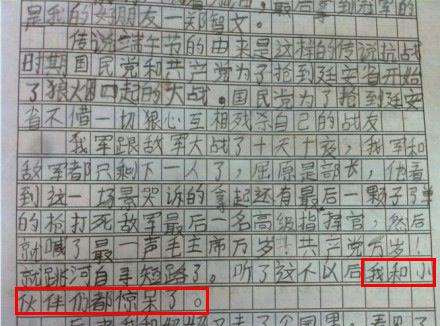 是我的好朋友一郑智文。
传说端午节的由来是这样的传说抗战
时期国民党和共产党为了抢到延安省开始
了狼烟四起的大战。国民党为了抢到延安
省不惜一切狠心互相残杀自己的战友
我军跟敌军大战了十天十夜，我军和
敌军都只剩下一人了，屈原是部长，他看
到这一场景哭诉的拿起还有最后一颗子弹
的枪打死敌军最后一名高级指挥官，然后
就喊了最一声毛主席万岁！共产党万岁！
就跳河自寻短路了。听了这不以后我和小
伙伴们都惊呆了。